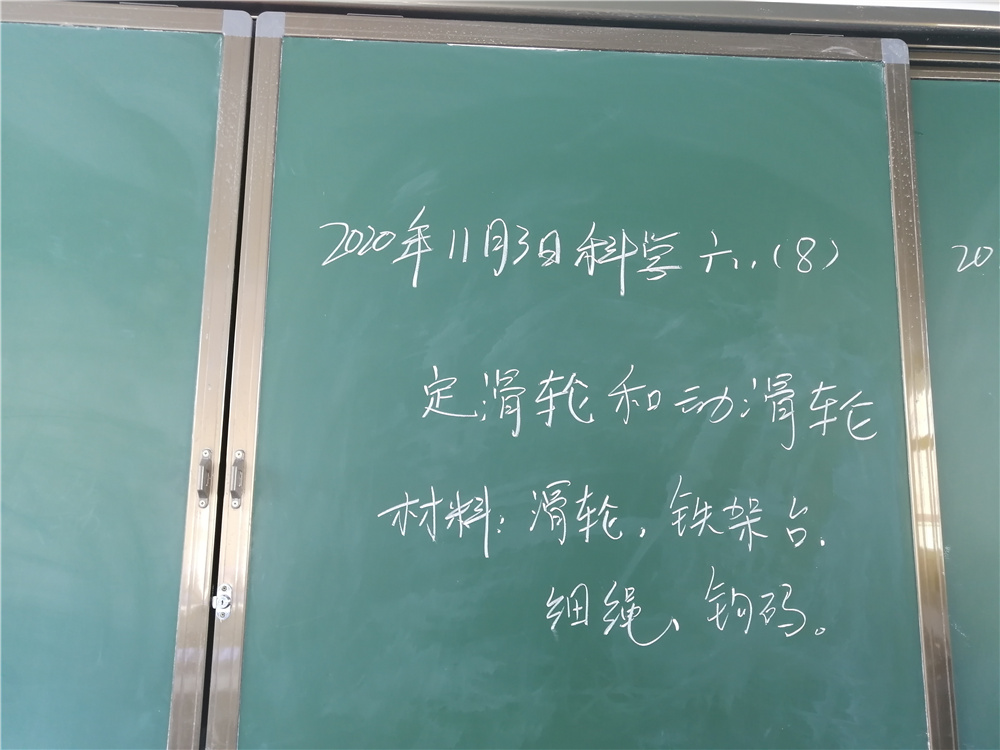 2020年11月3日科学六.(8)
定滑轮和动滑轮
材料:滑轮、铁架台、
细绳、钩码。
20